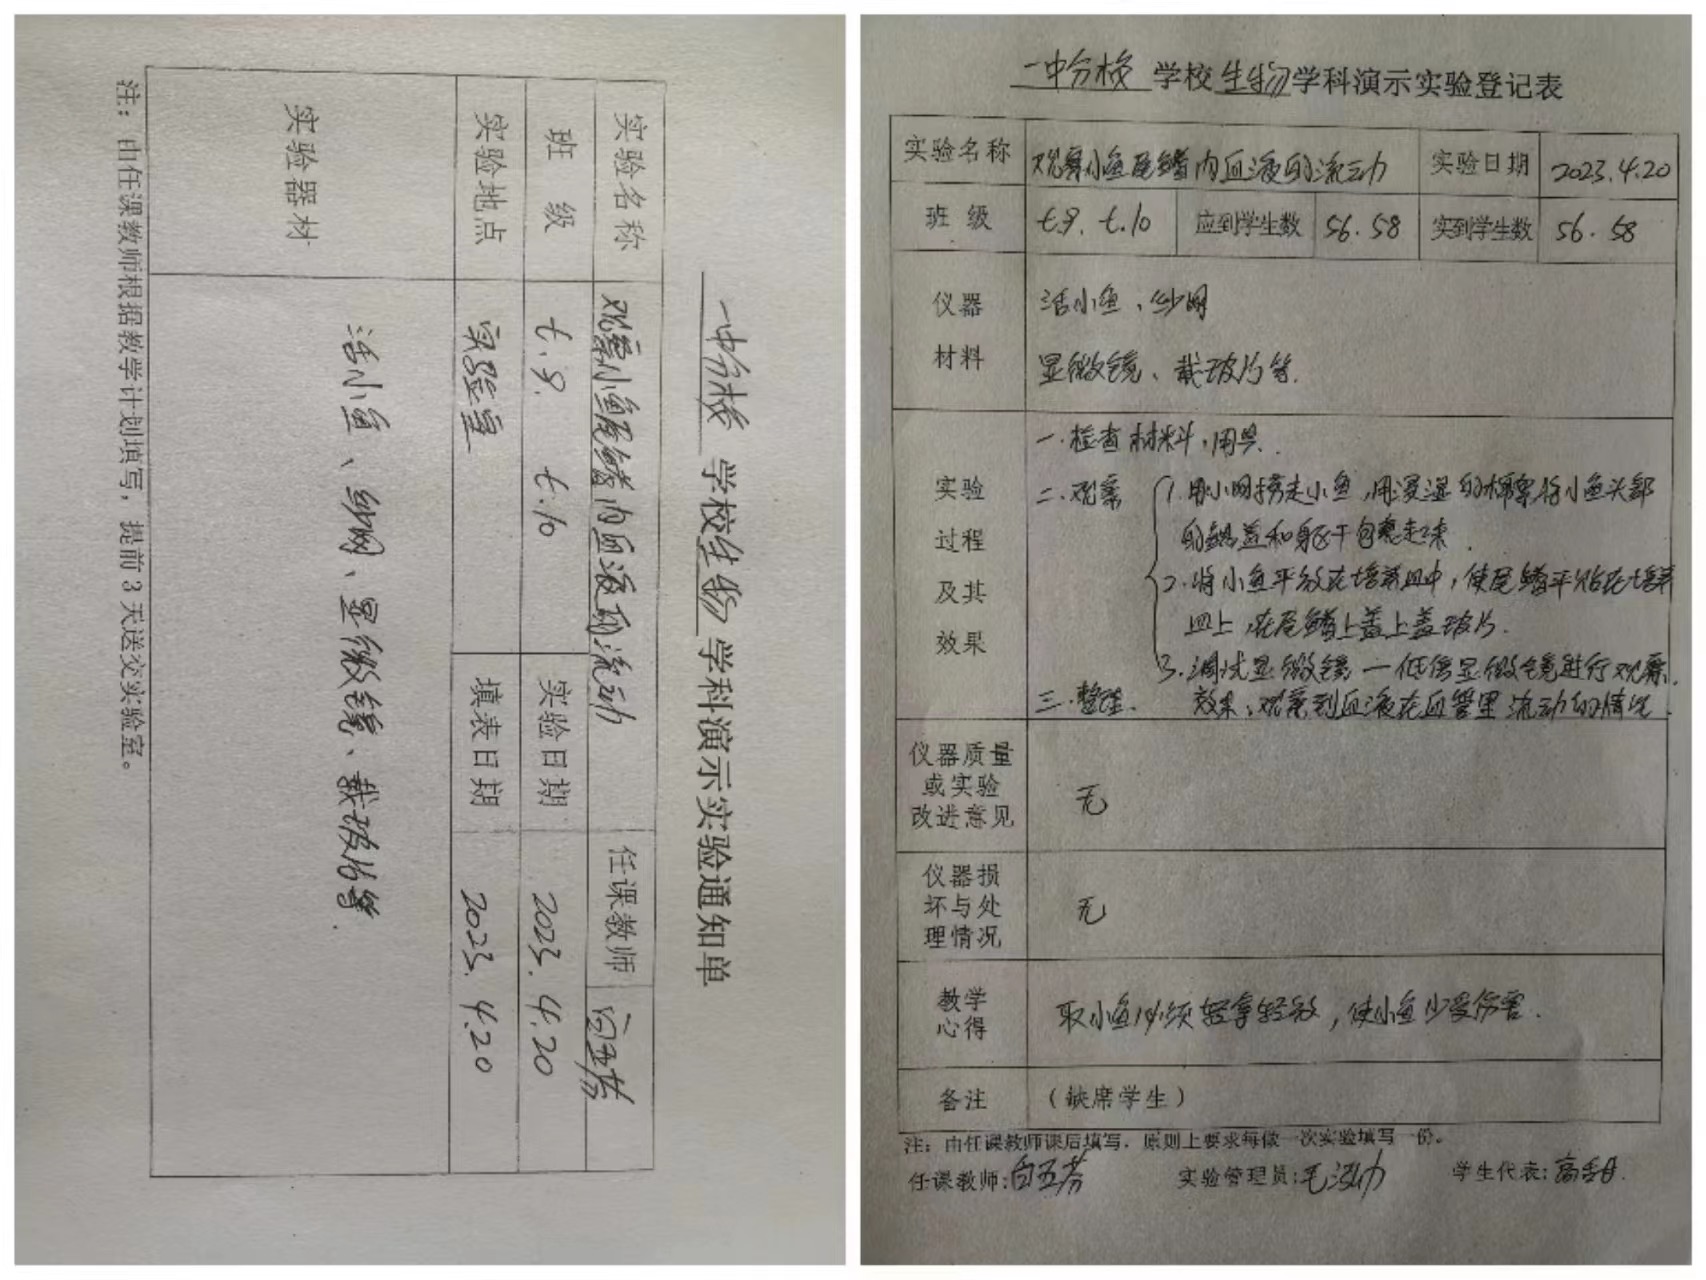 一中分校 学校生物学科演示实验通知单
实验名称 观察小鱼尾鳍内血液的流动 任课教师 白玉芬
班 级 七.9. 七.10 实验日期 2023.4.20
实验地点 实验室 填表日期 2023.4.20
实验器材 活小鱼、纱网、显微镜、载玻片等.
注：由任课教师根据教学计划填写，提前3天送交实验室。
一中分校 学校生物学科演示实验登记表
实验名称 观察小鱼尾鳍内血液的流动 实验日期 2023.4.20
班 级 七.9. 七.10 应到学生数 56.58 实到学生数 56.58
仪器 活小鱼、纱网
材料 显微镜、载玻片等.
实验
过程
及其
效果
一.检查材料，用具.
二.观察 1.用小网捞起小鱼，用浸湿的棉絮将小鱼头部
的鳃盖和躯干包裹起来.
2.将小鱼平放在培养皿中，使尾鳍平贴在培养
皿上，在尾鳍上盖上盖玻片.
3.调试显微镜—低倍显微镜进行观察.
三.整理. 效果、观察到血液在血管里流动的情况.
仪器质量
或实验
改进意见
无
仪器损
坏与处
理情况
无
教学
心得
取小鱼必须轻拿轻放，使小鱼少受伤害.
备注 （缺席学生）
注：由任课教师课后填写，原则上要求每做一次实验填写一份。
任课教师:白玉芬 实验管理员: 学生代表: